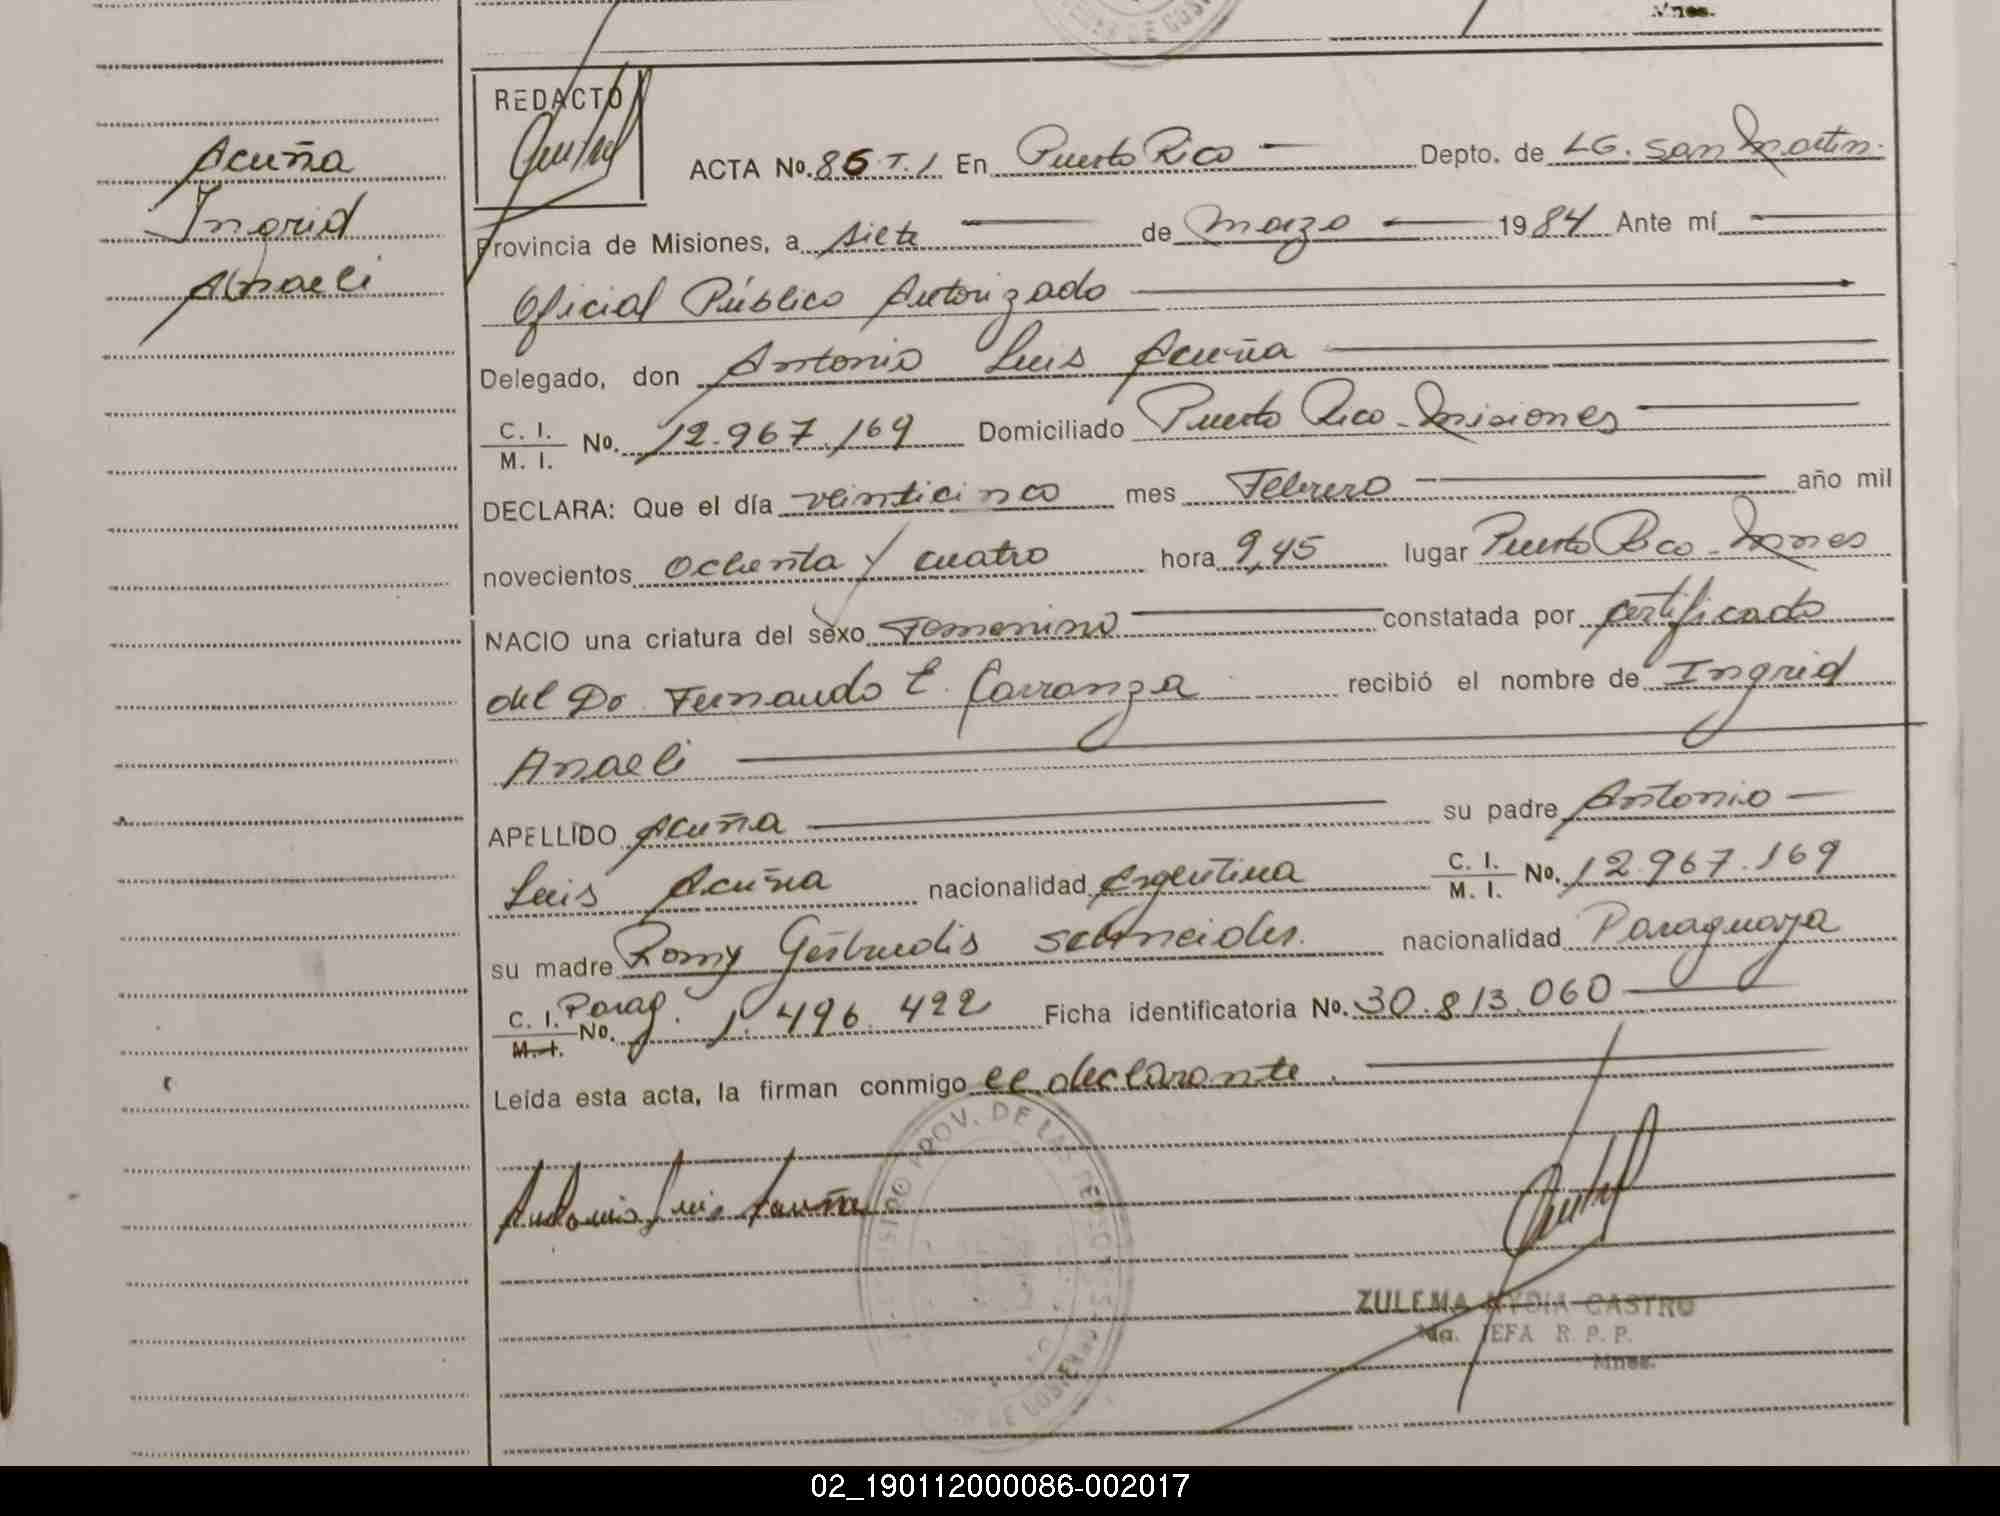 Mnes.
REDACTO
Acuña
Ingrid
Anaeli
ACTA No. 86 T.1 En Puerto Rico Depto. de LG. San Martin.
Provincia de Misiones, a siete de marzo 1984 Ante mí
Oficial Público Autorizado
Delegado, don Antonio Luis Acuña
C. I.
M. I. No. 12.967.169 Domiciliado Puerto Rico - Misiones
DECLARA: Que el día veinticinco mes Febrero año mil
novecientos ochenta y cuatro hora 9,45 lugar Puerto Rico - Mnes
NACIO una criatura del sexo Femenino constatada por certificado
del Dr. Fernando E. Carranza recibió el nombre de Ingrid
Anaeli
APELLIDO Acuña su padre Antonio
Luis Acuña nacionalidad Argentina C. I.
M. I. No. 12.967.169
su madre Romy Gertrudis Schneider. nacionalidad Paraguaya
C. I. Parag.
M. I. No. 1.496.422 Ficha identificatoria No. 30.813.060
Leída esta acta, la firman conmigo el declarante.
PROV. DE LA
Antonio Luis Acuña
ZULEMA NYDIA CASTRO
JEFA R. P. P.
Mnes.
02_190112000086-002017